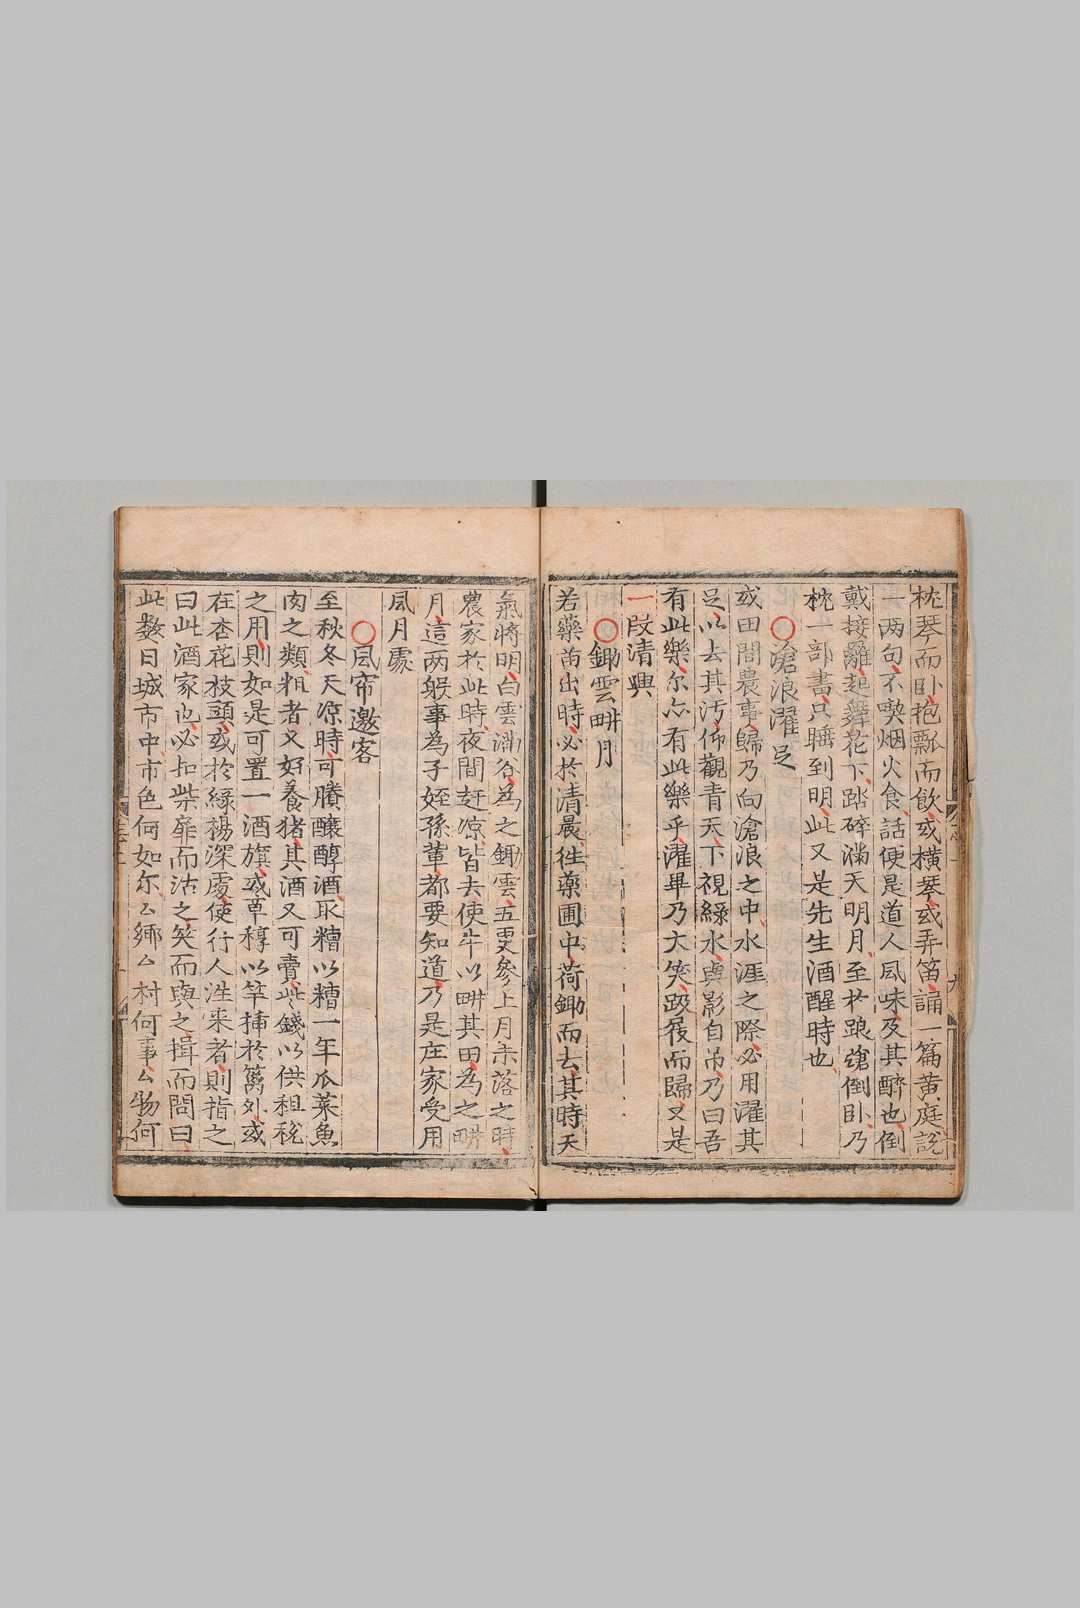 枕琴而卧抱瓢而飲或橫琴或弄笛誦一篇黃庭說
一兩句不喫烟火食話便是道人風味及其醉也倒
戴接䍦起舞花下踏碎滿天明月至於踉蹌倒卧乃
枕一部書只睡到明此又是先生酒醒時也
○滄浪濯足
或田間農事歸乃向滄浪之中水涯之際必用濯其
足以去其汚仰觀青天下視綠水與影自吊乃曰吾
有此樂尔亦有此樂乎濯畢乃大笑跋屐而歸又是
一段清興
○鋤雲畊月
若藥苗出時必於清晨徃藥圃中荷鋤而去其時天
氣將明白雲滿谷為之鋤雲五更參上月未落之時
農家於此時夜間赶凉皆去使牛以畊其田為之畊
月這兩般事為子姪孫輩都要知道乃是庄家受用
風月處
○風帘邀客
至秋冬天凉時可賸釀醇酒取糟以糟一年瓜菜魚
肉之類粗者又好養猪其酒又可賣此錢以供租稅
之用則如是可置一酒旗或草稕以竿插於籬外或
在杏花枝頭或於緑楊深處使行人泩来者則指之
曰此酒家也必扣柴扉而沽之笑而與之揖而問曰
此數日城市中市色何如尔厶鄉厶村何事厶物何